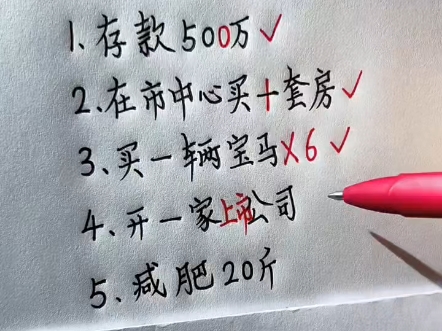 1.存款500万✓
2.在市中心买十套房✓
3、买一辆宝马X6✓
4、开一家上市公司
5、减肥20斤